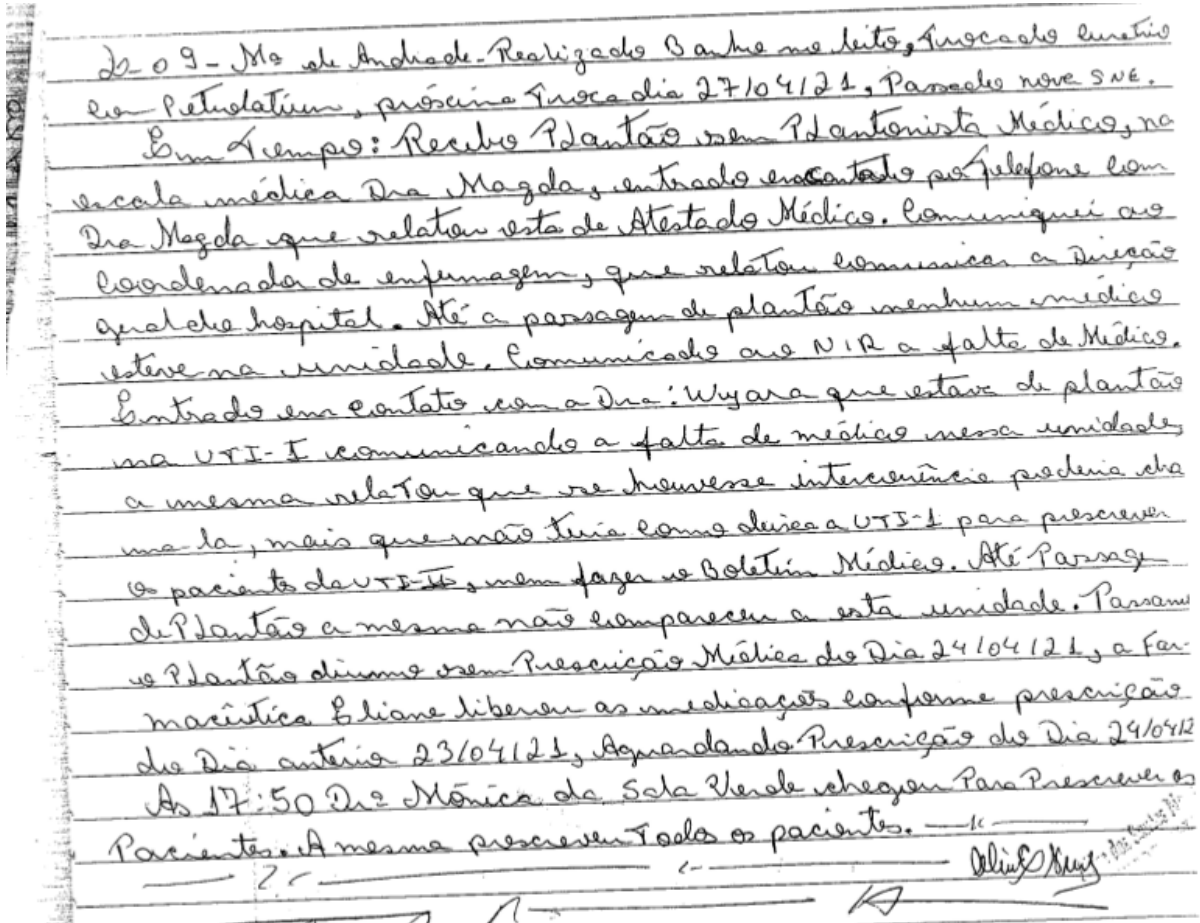 L-09- Ma de Andrade- Realizado Banho no leito, trocado curativo
com Petrolatium, próscima troca dia 27/04/21, Passado nova SNE.
Em Tempo: Recebo Plantão sem Plantonista Médico, na
escala médica Dra Magda, entrado em contato por telefone com
Dra Magda que relatou esta de Atestado Médico. Comuniquei ao
Coordenada de enfermagem, que relatou comunicar a Direção
geral do hospital. Até a passagem de plantão nenhum médico
esteve na unidade. Comunicado ao NIR a falta de Médico.
Entrado em contato com a Dra: Wyara que estava de plantão
na UTI-I comunicando a falta de médico nessa unidade,
a mesma relatou que se houvesse intercorrência poderia cha
ma-la, mais que não teria como deixa a UTI-1 para prescrever
os paciente da UTI-II, nem fazer o Boletim Médico. Até Passage
de Plantão a mesma não compareceu a esta unidade. Passamo
o Plantão diurno sem Prescrição Médica do Dia 24/04/21, a Far-
macêutica Eliane liberou as medicações conforme prescrição
do Dia anterio 23/04/21, Aguardando Prescrição do Dia 24/04/2
As 17:50 Drª Mônica da Sala Verde chegou Para Prescrever os
Pacientes. A mesma prescreveu Todos os pacientes.